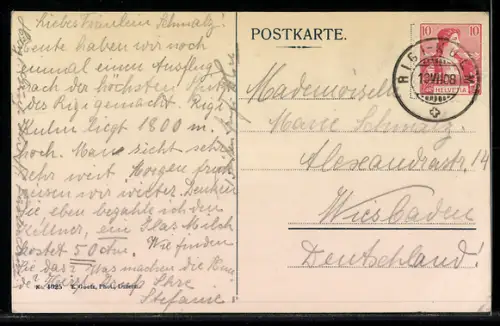 Liebes Fräulein Schmalz!
Heute haben wir noch
einmal einen Ausflug
nach der höchsten Spitze
des Rigi gemacht. Rigi
Kulm liegt 1800 m.
hoch. Man sieht sehr,
sehr weit. Morgen früh
reisen wir weiter. Denken
Sie eben bezahle ich den
Kellner, ein Glas Milch
kostet 50 Cts. Wie finden
Sie das? Was machen die
Gruß Ihre
Stefanie.
No. 4025 E. Goetz, Phot., Luzern.
POSTKARTE.
10 10
HELVETIA
RIGI-KULM
VII.08
Mademoiselle
Marie Schmalz.
Alexandrastr. 14
Wiesbaden
Deutschland!